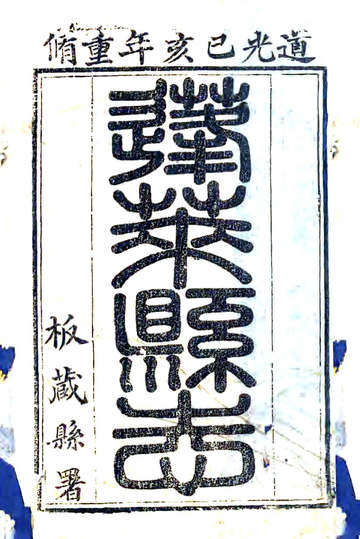 道光已亥年重脩
蓬萊縣志
板藏縣署